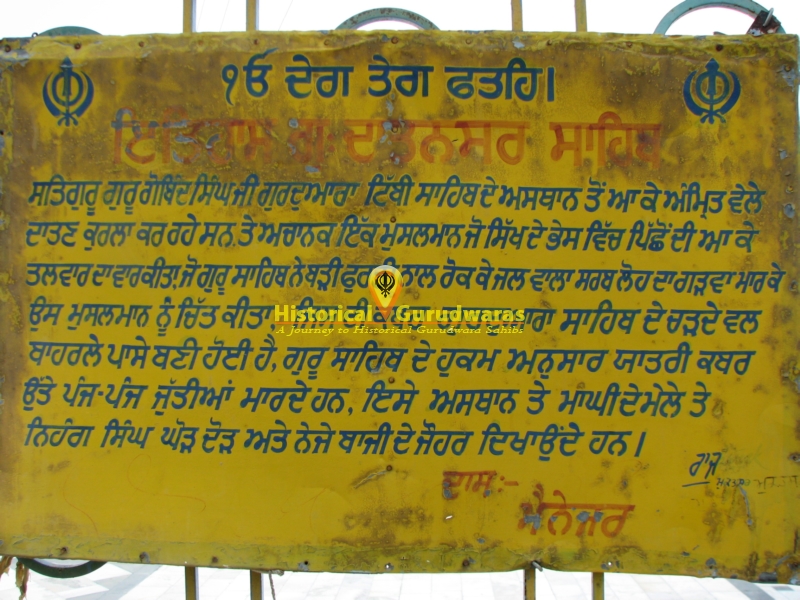 ੧ਓ ਦੇਗ ਤੇਗ ਫਤਹਿ।
ਇਤਿਹਾਸ ਗੁ: ਦਾਤਨਸਰ ਸਾਹਿਬ
ਸਤਿਗੁਰੂ ਗੁਰੂ ਗੋਬਿੰਦ ਸਿੰਘ ਜੀ ਗੁਰਦੁਆਰਾ ਟਿੱਬੀ ਸਾਹਿਬ ਦੇ ਅਸਥਾਨ ਤੋਂ ਆ ਕੇ ਅੰਮ੍ਰਿਤ ਵੇਲੇ
ਦਾਤਣ ਕੁਰਲਾ ਕਰ ਰਹੇ ਸਨ, ਤੇ ਅਚਾਨਕ ਇੱਕ ਮੁਸਲਮਾਨ ਜੋ ਸਿੱਖ ਦੇ ਭੇਸ ਵਿੱਚ ਪਿੱਛੋਂ ਦੀ ਆ ਕੇ
ਤਲਵਾਰ ਦਾ ਵਾਰ ਕੀਤਾ, ਜੋ ਗੁਰੂ ਸਾਹਿਬ ਨੇ ਬੜੀ ਨਾਲ ਰੋਕ ਕੇ ਜਲ ਵਾਲਾ ਸਰਬ ਲੋਹ ਦਾ ਗੜਵਾ ਮਾਰ ਕੇ
ਉਸ ਮੁਸਲਮਾਨ ਨੂੰ ਚਿੱਤ ਕੀਤਾ ਸਾਹਿਬ ਦੇ ਚੜਦੇ ਵਲ
Historical Gurudwaras
A Journey to Historical Gurudwara Sahibs
ਬਾਹਰਲੇ ਪਾਸੇ ਬਣੀ ਹੋਈ ਹੈ, ਗੁਰੂ ਸਾਹਿਬ ਦੇ ਹੁਕਮ ਅਨੁਸਾਰ ਯਾਤਰੀ ਕਬਰ
ਉੱਤੇ ਪੰਜ-ਪੰਜ ਜੁੱਤੀਆਂ ਮਾਰਦੇ ਹਨ, ਇਸੇ ਅਸਥਾਨ ਤੇ ਮਾਘੀ ਦੇ ਮੇਲੇ ਤੇ
ਨਿਹੰਗ ਸਿੰਘ ਘੋੜ ਦੋੜ ਅਤੇ ਨੇਜੇ ਬਾਜੀ ਦੇ ਜੌਹਰ ਦਿਖਾਉਂਦੇ ਹਨ।
ਦਾਸ:-
ਮੈਨੇਜਰ